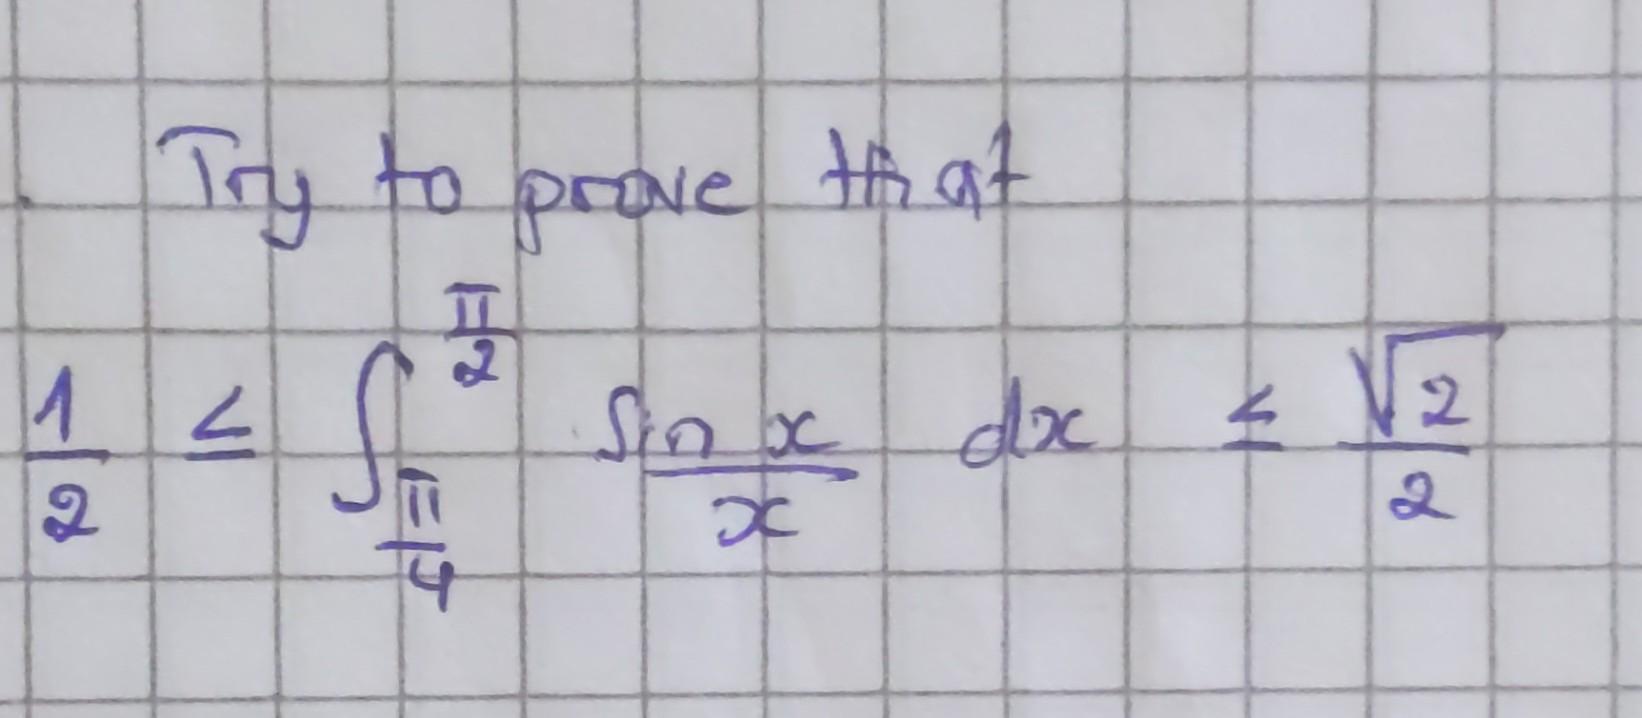 Try to prove that
1/2 ≤ ∫_{π/4}^{π/2} sin x / x dx ≤ √2/2